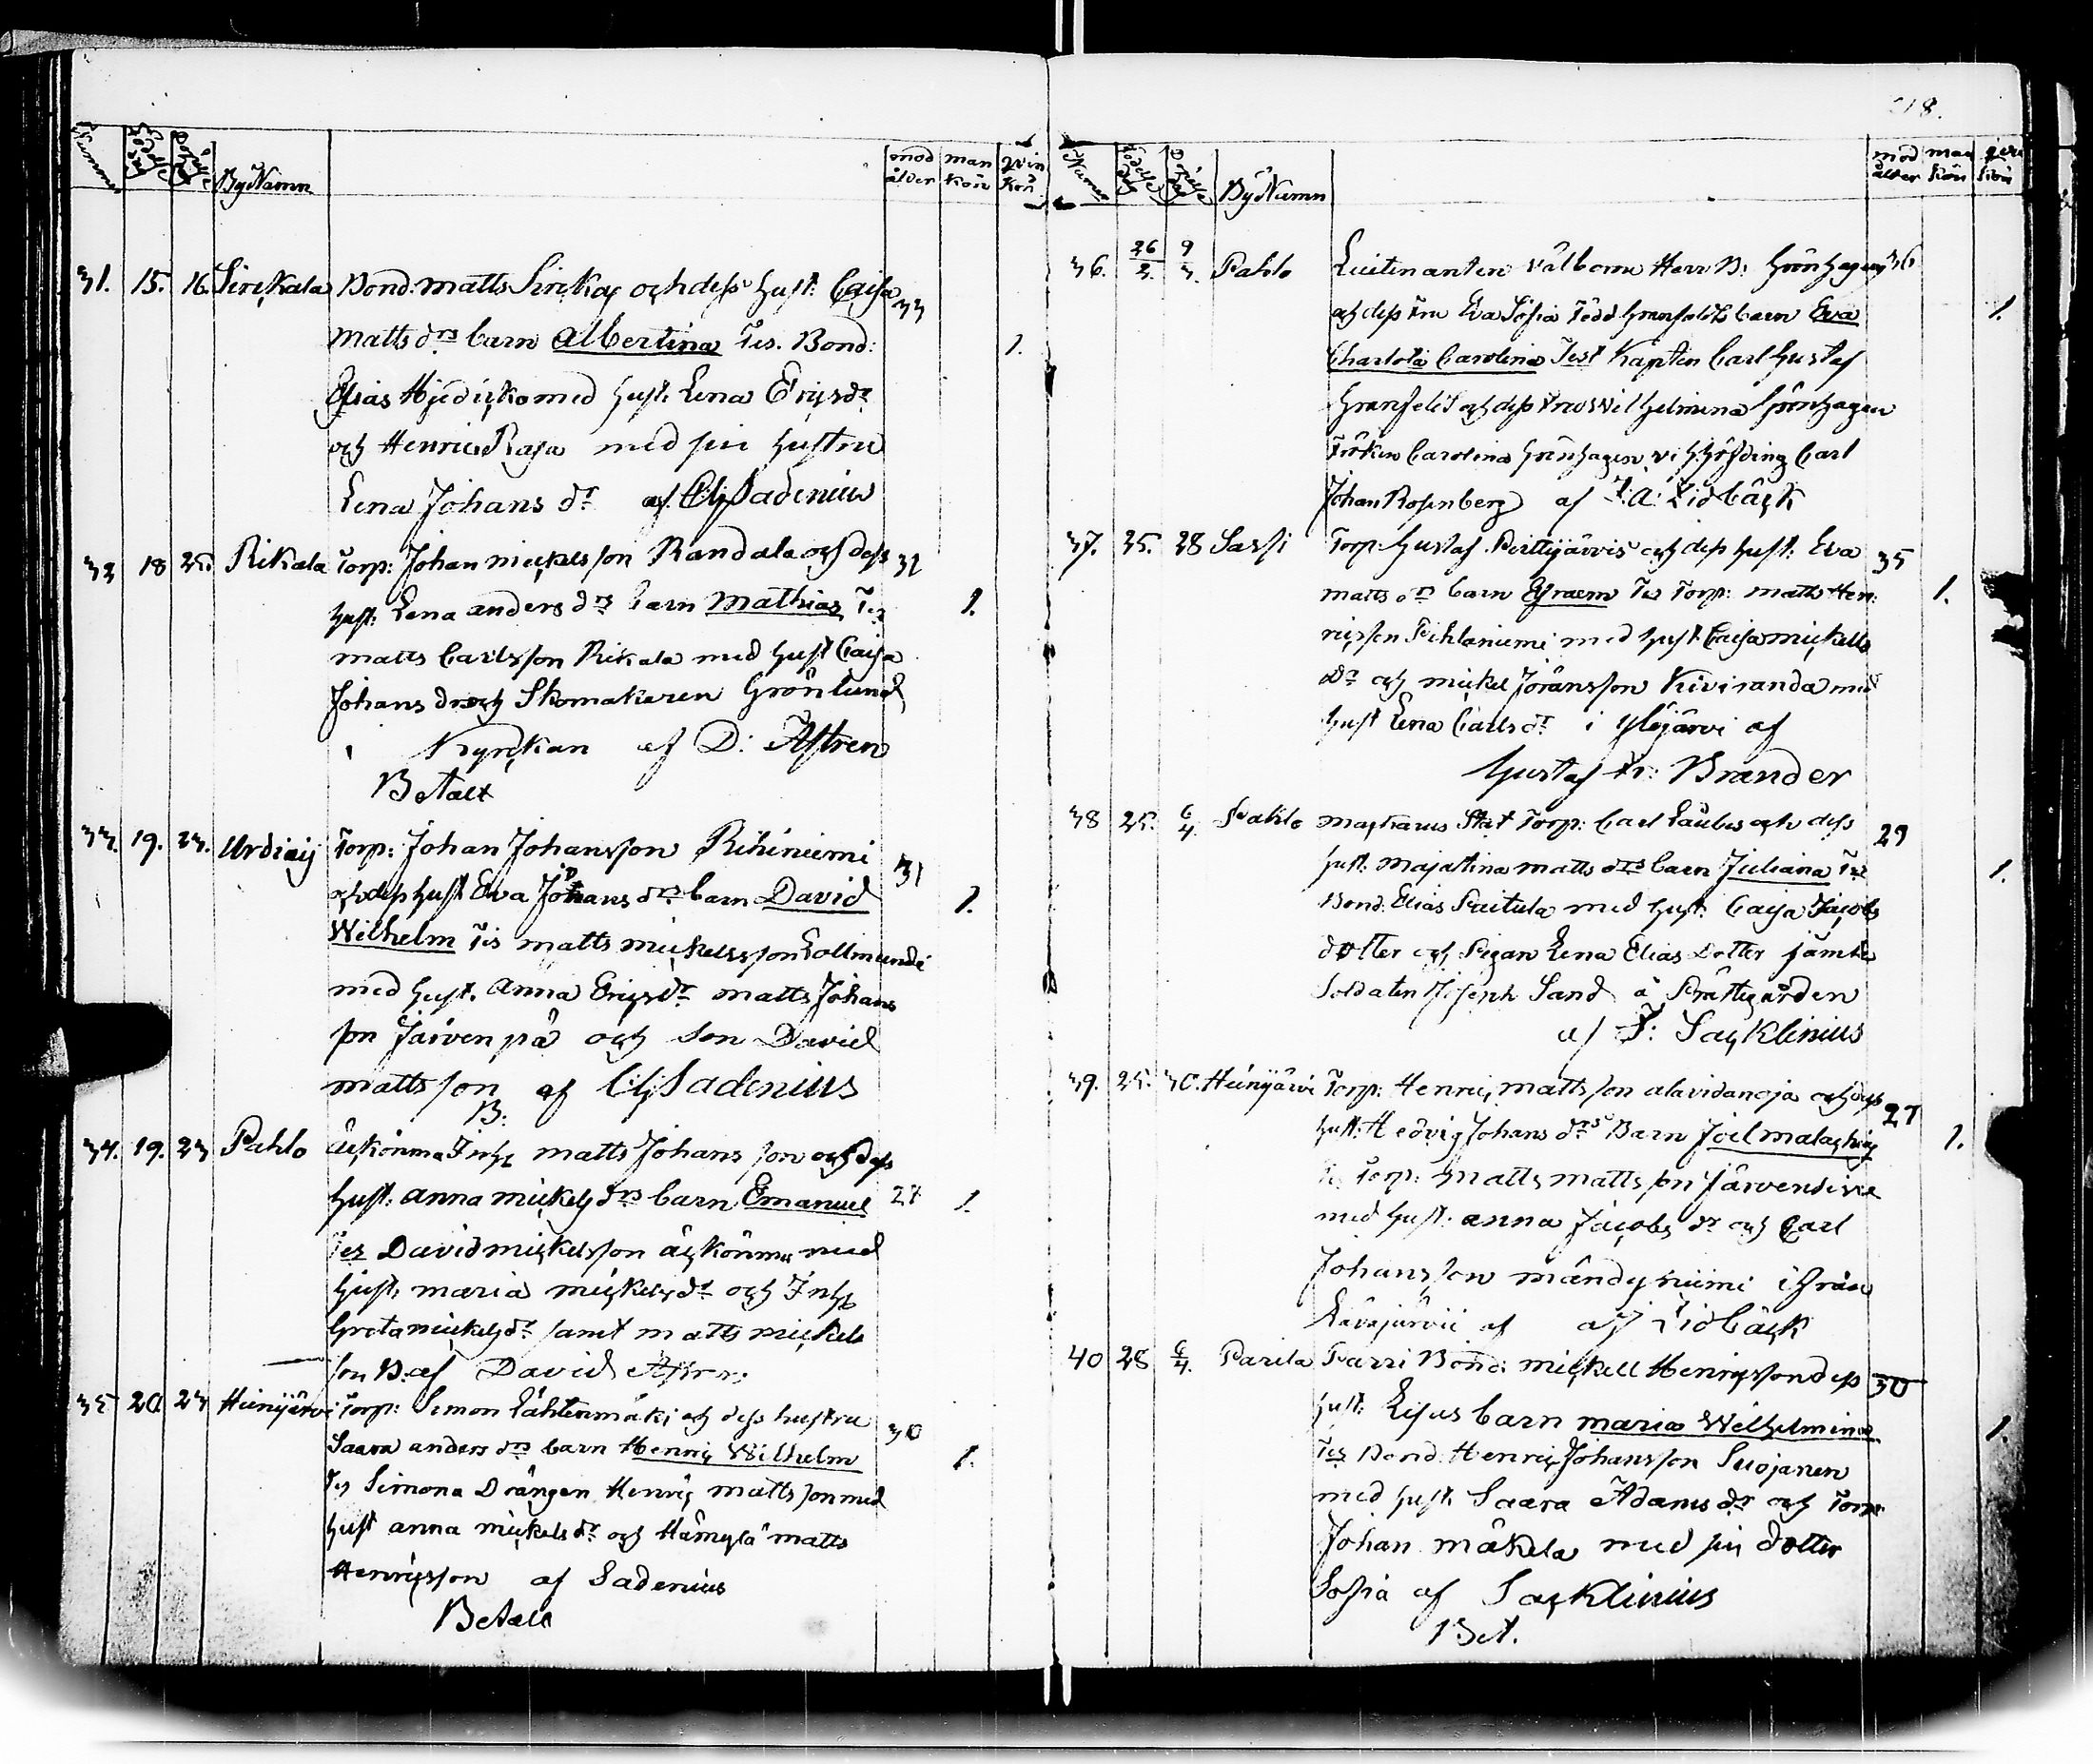 Nummer Födelse dag Döpelse dag ByNamn mod ålder man kön qvin kön
31. 15. 16. Sirekala Bond: matts Sireka och dess hust: Caisa 33
Matts drs barn Albertina Tes. Bond: 1.
Esias Hjedicko med hust. Lena Ericsdr
och Henric Raja med sin hustru
Lena Johans dr af CHSadenius
32 18 25 Rikala Torp: Johan mickelsson Randala och dess 32
hust: Lena anders drs barn Mathias Tes 1.
matts Carlsson Rikala med hust Caisa
Johans dr och Skomakaren Grönlund
i Kyrckan af D: Astren
Betalt
33. 19. 23. Urdiaij Torp: Johan Johansson Rihiniemi 31
och dess hust Eva Johans drs barn David 1.
Wilhelm Tes matts mickelsson Lollmundi
med hust. Anna Ericsdr matts Johans
son Järvenpä och son David
mattsson af CHSadenius
B:
34. 19. 23 Pahlo Äckönma Inhs matts Johansson och dess
hust: anna mickels drs barn Emanuel 27 1.
Tes David mickelsson äckönma med
hust. maria mickelsdr och Inhs
Greta mickelsdr samt matts mickels
son B. af David Astren
35 20 23 Heinijärvi Torp: Simon Lähtenmäki och dess hustru 30
Saara anders drs barn Henric Wilhelm 1.
Tes Simona Drängen Henric mattsson med
hust anna mickelsdr och Hämylä matts
Henricsson af Sadenius
Betalt
218.
Nummer Födelse dag Döpelse dag ByNamn mod ålder man kön qvin kön
36. 26/2. 9/3. Pahlo Luitenanten välborne Herr B: Grönhagen 36
och dess Fru Eva Sofia Född Granfeldts barn Eva 1.
Charlota Carolina Test Kapten Carl Gustaf
Granfelt och dess Fru Wilhelmina Grönhagen
Fröken Carolina Grönhagen, v: h:höfding Carl
Johan Rosenberg af F: A: Lidbäck
37. 25. 28 Sassi Torp: Gustaf Perttijärvis och dess hust: Eva 35
matts drs barn Efraem Tes Torp: matts Hen: 1.
ricsson Pihlaniemi med hust Caisa mickells
dr och mickel Jöransson Kiviranda med
hust Lena Carlsdr i Ylöjärvi af
Gustaf Fr: Brander
38 25. 6/4. Pahlo Torp: Carl och dess 29
hust: Majastina matts drs barn Juliana Tes 1.
Bond. Elias Puitula med hust. Caisa Jacobs
dotter och Pigan Lena Elias Dotter jämte
Soldaten Joseph Sand å Prästegården
af F: Sacklinius
39. 25. 30. Heinijärvi Torp: Henric mattsson alavidanoja och dess 27
hust: Hedvig Johans drs Barn Joel malachias 1.
Tes Torp: Matts mattsson Järvensivu
med hust: anna Jacobs dr och Carl
Johansson mändyniemi ifrån
af af Lidbäck
40 28 6/4. Parila Parri Bond: mickell Henricsson dess 30
hust: Lisus barn maria Wilhelmina 1.
Tes Bond. Henric Johansson Suojanen
med hust. Saara Adams dr och Torp:
Johan mäkela med sin dotter
Sofia af Sacklinius
Bet.